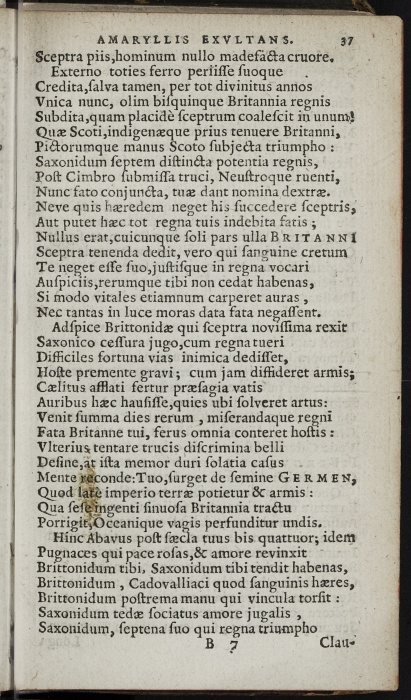 AMARYLLIS EXVLTANS. 37
Sceptra piis, hominum nullo madefacta cruore.
Externo toties ferro periiſſe ſuoque
Credita, ſalva tamen, per tot divinitus annos
Vnica nunc, olim biſquinque Britannia regnis
Subdita, quam placidè ſceptrum coaleſcit in unum!
Quæ Scoti, indigenæque prius tenuere Britanni,
Pictorumque manus Scoto ſubjecta triumpho:
Saxonidum ſeptem diſtincta potentia regnis,
Poſt Cimbro ſubmiſſa truci, Neuſtroque ruenti,
Nunc fato conjuncta, tuæ dant nomina dextræ.
Neve quis hæredem neget his ſuccedere ſceptris,
Aut putet hæc tot regna tuis indebita fatis;
Nullus erat, cuicunque ſoli pars ulla BRITANNI
Sceptra tenenda dedit, vero qui ſanguine cretum
Te neget eſſe ſuo, juſtiſque in regna vocari
Auſpiciis, rerumque tibi non cedat habenas,
Si modo vitales etiamnum carperet auras,
Nec tantas in luce moras data fata negaſſent.
Adſpice Brittonidæ qui ſceptra noviſſima rexit
Saxonico ceſſura jugo, cum regna tueri
Difficiles fortuna vias inimica dediſſet,
Hoſte premente gravi; cum jam diffideret armis;
Cælitus afflati fertur præſagia vatis
Auribus hæc hauſiſſe, quies ubi ſolveret artus:
Venit ſumma dies rerum, miſerandaque regni
Fata Britanne tui, ferus omnia conteret hoſtis:
Vlterius tentare trucis diſcrimina belli
Deſine, at iſta memor duri ſolatia caſus
Mente reconde: Tuo, ſurget de ſemine GERMEN,
Quod latè imperio terræ potietur & armis:
Qua ſeſe ingenti ſinuoſa Britannia tractu
Porrigit, Oceanique vagis perfunditur undis.
Hinc Abavus poſt ſæcla tuus bis quattuor; idem
Pugnaces qui pace roſas, & amore revinxit
Brittonidum tibi, Saxonidum tibi tendit habenas,
Brittonidum, Cadovalliaci quod ſanguinis hæres,
Brittonidum poſtrema manu qui vincula torſit:
Saxonidum tedæ ſociatus amore jugalis,
Saxonidum, ſeptena ſuo qui regna triumpho
B 7 Clau-